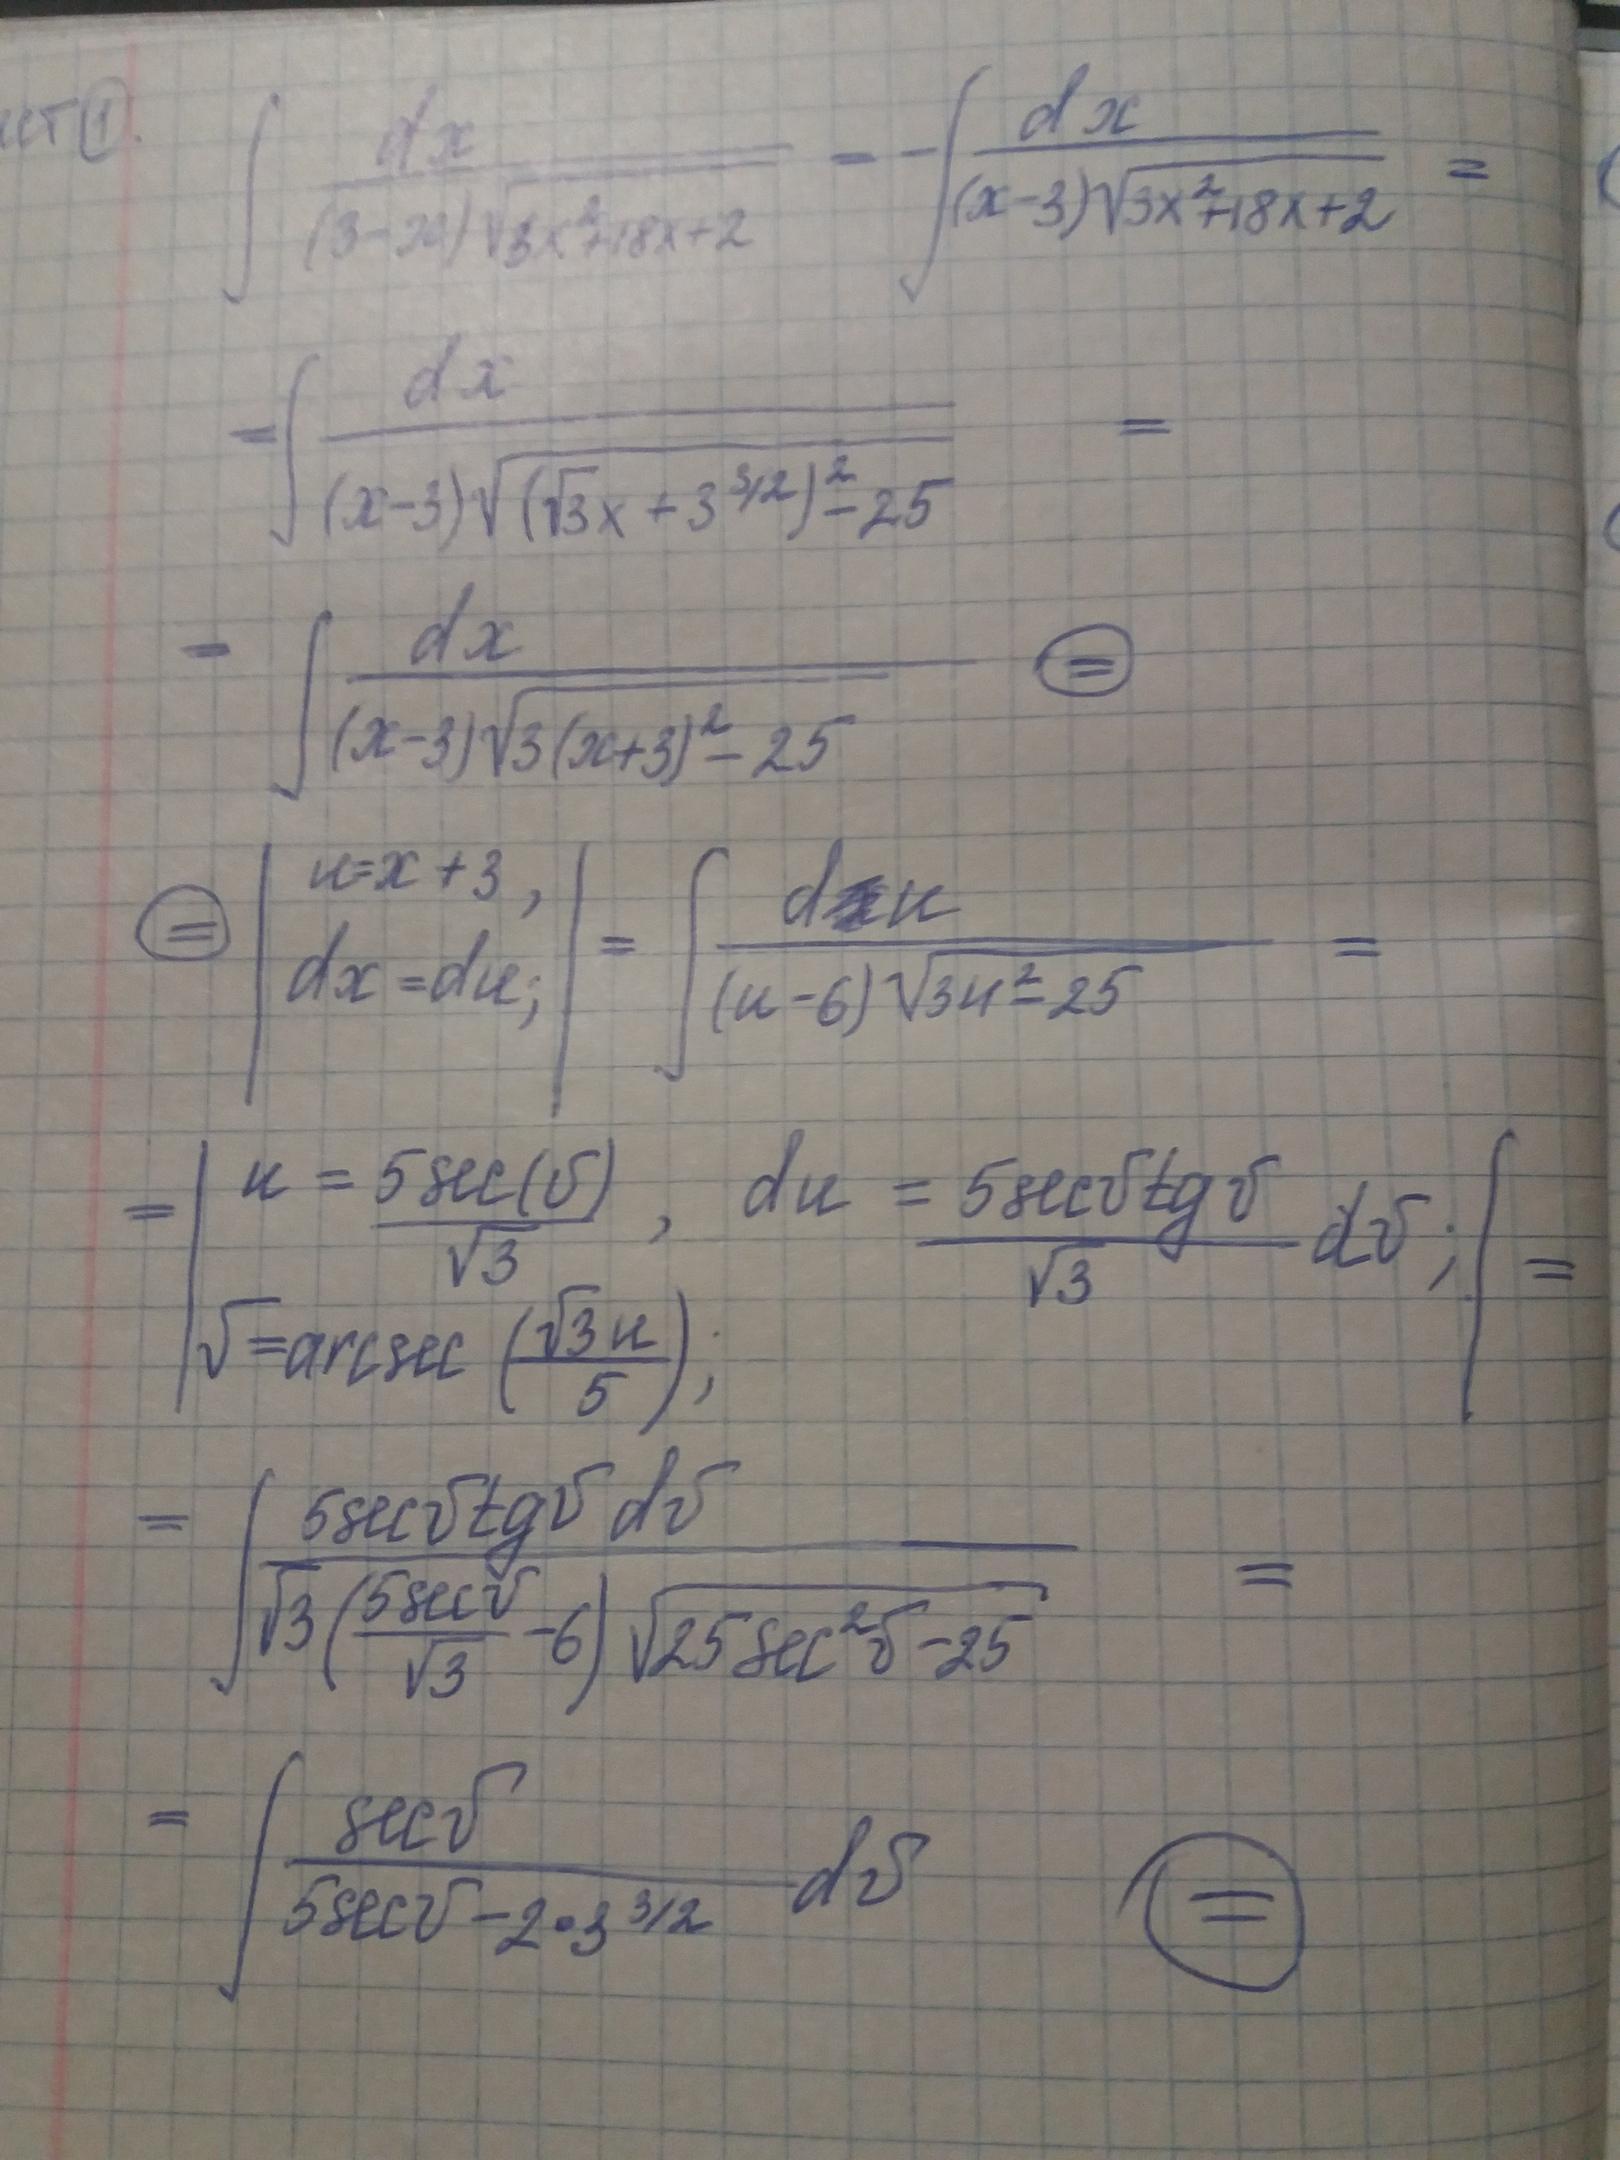 ①. ∫ dx / ((3-x)√(3x²+18x+2)) = -∫ dx / ((x-3)√(3x²+18x+2)) =
= ∫ dx / ((x-3)√((√3x + 3^(3/2))² - 25)) =
= ∫ dx / ((x-3)√(3(x+3)² - 25)) ⊜
⊜ | u=x+3, dx=du; | = ∫ du / ((u-6)√(3u²-25)) =
= | u = 5sec(v)/√3, du = (5secv tgv/√3) dv;
v=arcsec(√3u/5); | =
= ∫ 5secv tgv dv / (√3(5secv/√3 - 6)√(25sec²v-25)) =
= ∫ secv / (5secv - 2•3^(3/2)) dv ⊜